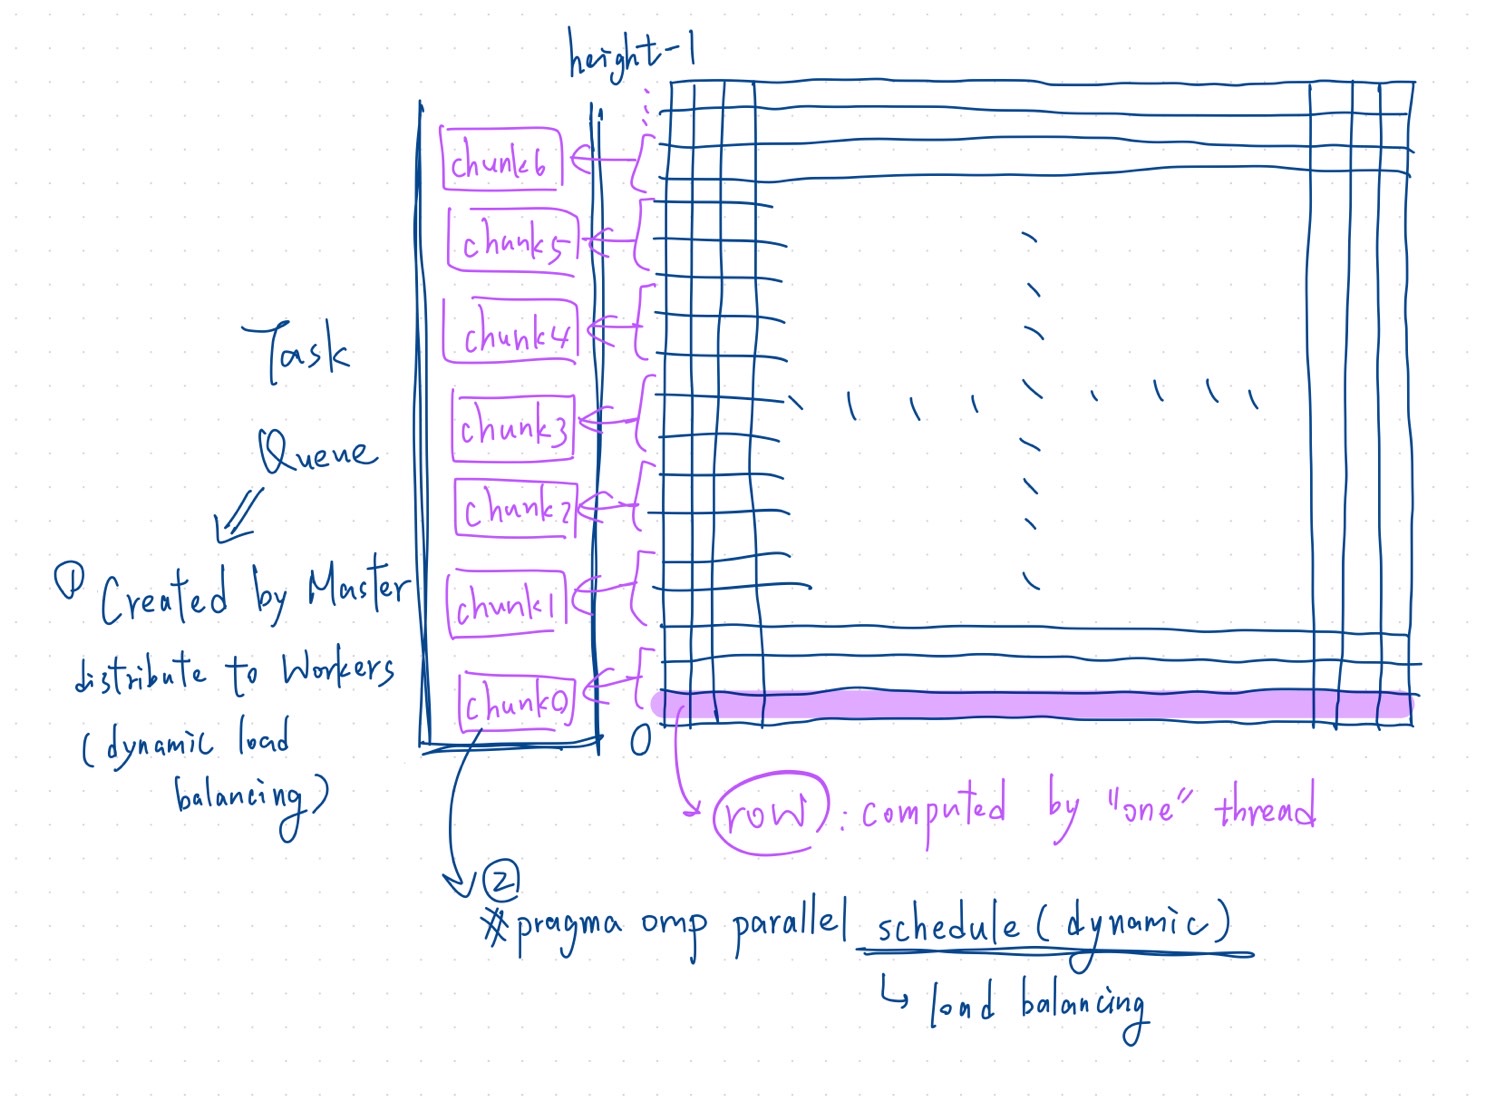 height-1
chunk6
chunk5
chunk4
chunk3
chunk2
chunk1
chunk0
0
Task
Queue
① Created by Master
distribute to Workers
(dynamic load
balancing)
row : computed by "one" thread
②
#pragma omp parallel schedule(dynamic)
↳ load balancing